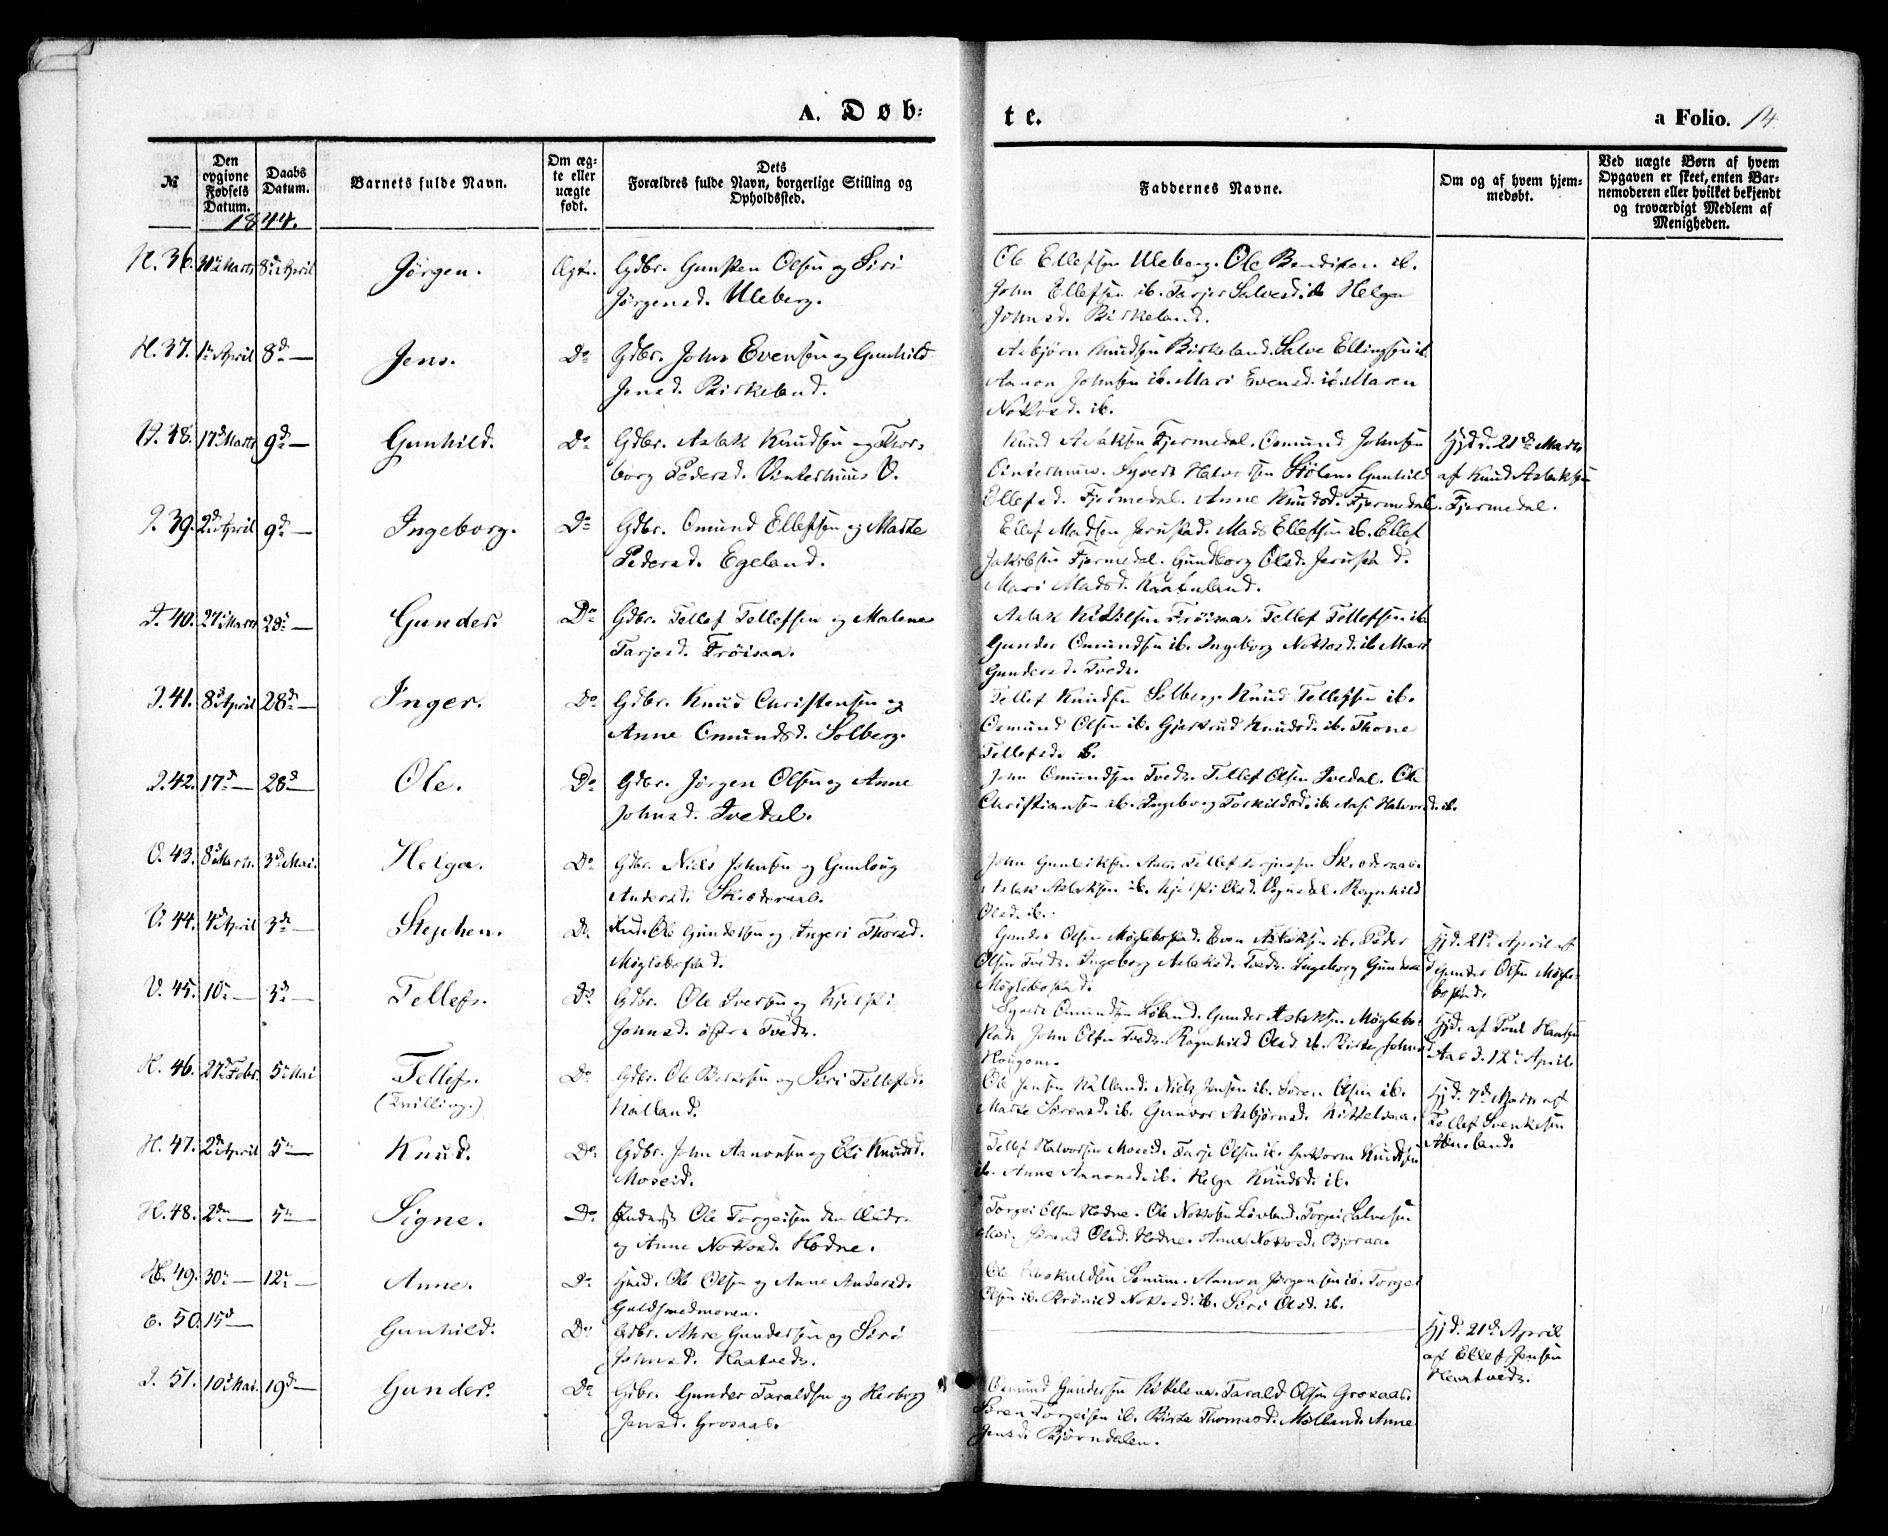 A. Døb:
te.
a Folio. 14.
№
Den opgivne Fødsels Datum.
Daabs Datum.
Barnets fulde Navn.
Om ægte eller uægte født.
Dets Forældres fulde Navn, borgerlige Stilling og Opholdssted.
Faddernes Navne.
Om og af hvem hjemmedøbt.
Ved uægte Børn af hvem Opgaven er skeet, enten Barnemoderen eller hvilket bekjendt og troværdigt Medlem af Menigheden.
1844.
H. 36. 31te Marts 8de April Jørgen. Ægte. Gdbr. Olsen og Siri
Jørgensd. Uleberg.
Ole Ellefsen Uleberg. Ole Bendixen ib.
John Ellefsen ib. Helga
Johnsd. Birkeland.
H. 37. 1ste April 8de — Jens. Do Gdbr. John Evensen og Gunhild
Jensd. Birkeland.
Asbjørn Knudsen Birkeland. Salve Ellingsen ib.
Aanon Johnsen ib. Mari Evensd. ib. Maren
ib.
H. 38. 17de Marts 9de — Gunhild. Do Gdbr. Aslak Knudsen og Thor-
borg Pedersd. Vinterhuus V.
Knud Aslaksen Fjermedal. Osmund Johnsen
Vinterhuus. Syvert Halvorsen Stølen. Gunhild
Ellefsd. Fjermedal. Anne Knudsd. Fjermedal.
Hjd. d. 21de Marts
af Knud Aslaksen
Fjermedal.
I. 39. 2den April 9de — Ingeborg. Do Gdbr. Omund Ellefsen og Marte
Pedersd. Egeland.
Ellef Madsen Jerustad. Mads Ellefsen ib. Ellef
Jakobsen Fjermedal. Gundborg Olsd. Jerustad.
Mari Madsd.
I. 40. 27de Marts 28de — Gunder. Do Gdbr. Tellef Tellefsen og Malene
Tarjesd. Frøisaa.
Aslak Frøisaa. Tellef Tellefsen ib.
Gunder Omundsen ib. Ingeborg ib. Mari
Gundersd. Tvedt.
I. 41. 8de April 28de — Inger. Do Gdbr. Knud Christensen og
Anne Omundsd. Solberg.
Tellef Knudsen Solberg. Knud Tellefsen ib.
Osmund Olsen ib. Gjertrud Knudsd. ib. Thone
Tellefsd. ib.
I. 42. 17de — 28de — Ole. Do Gdbr. Jørgen Olsen og Anne
Johnsd. Ivedal.
John Omundsen Tvedt. Tellef Olsen Ivedal. Ole
Christiansen ib. Ingeborg Torkildsd. ib. Aase Halvorsd. ib.
V. 43. 8de Marts 3de Mai. Helga. Do Gdbr. Niels Johnsen og Gunloug
Andersd.
John Tellef
Aslak Aslaksen ib. Olsd. Ragnhild
Olsd. ib.
V. 44. 4de April 3de — Stephen. Do Ole Gundersen og Ingeri Thorsd.
Møglebostad.
Gunder Olsen Møglebostad. Even Aslaksen ib. Peder
Olsen Tvedt. Ingeborg Aslaksd. Tvedt. Ingeborg Gundersd.
Møglebostad.
Hjd. 21de April af
Gunder Olsen Møgle-
bostad.
V. 45. 10de — 3de — Tellef. Do Gdbr. Ole Iversen og
Johnsd. østre Tvedt.
Syvert Omundsen Løland. Gunder Aslaksen Møglebo-
stad. John Olsen Tvedt. Ragnhild Olsd. ib. Birte Johnsd.
Hougom.
Hjd. af Poul Hansen
Aas d. 12te April.
H. 46. 27de Febr. 5te Mai Tellef. Do Gdbr. Ole og Siri Tellefsd.
(Tvilling.) Kalland.
Ole Jensen Kalland. Niels Jensen ib. Søren Olsen ib.
Marte Sørensd. ib. Gunvor Asbjørnsd.
Hjd. 7de Marts af
Tellef Svenkesen
Abusland.
H. 47. 2den April 5te — Knud. Do Gdbr. John Aanonsen og Eli Knudsd.
Moseid.
Tellef Halvorsen Moseid. Tarje Olsen ib. Guttorm Knudsen
ib. Anne Aanonsd. ib. Helga Knudsd. ib.
H. 48. 2den — 5te — Signe. Do Ole Torgeisen den
og Anne Hodne.
Torgei Olsen Hodne. Ole Løvland. Torgei Salvesen
Jorand Olsd. Hodne. Anne Bjoraa.
H. 49. 30te — 12te — Anne. Do Ole Olsen og Anne Andersd.
Guldsmedmoen.
Ole Senum. Aanon Jørgensen ib. Torger
Olsen ib. Brønild ib. Siri Olsd. ib.
E. 50. 15de — Gunhild. Do Gdbr. Gundersen og Siri
Johnsd. Haatvedt.
Hjd. 21de April
af Ellef Jensen
Haatvedt.
I. 51. 10de Mai. 19de — Gunder. Do Gdbr. Gunder Taraldsen og Herborg
Jensd. Grosaas.
Osmund Gundersen Tarald Olsen Grosaas.
Søren Torgeisen ib. Birte Thomasd. Mølland. Anne
Jensd. Bjørndalen.